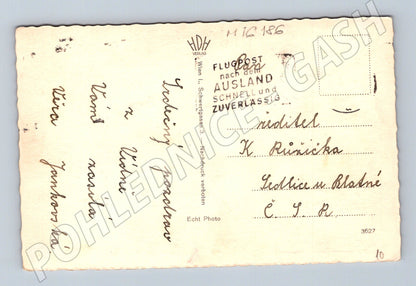 HDH
VERLAG
M IG 186
FLUGPOST
nach dem
AUSLAND
SCHNELL und
ZUVERLÄSSIG
Pan
Srdečný pozdrav
z Vídně
Vám zasílá
Věra Jankovská
Wien I., Schwertgasse 3 Nachdruck verboten
Echt Photo
ředitel
K. Růžička
Sedlice u Blatné
Č. S. R.
3627
10
POHLEDNICE - GASH